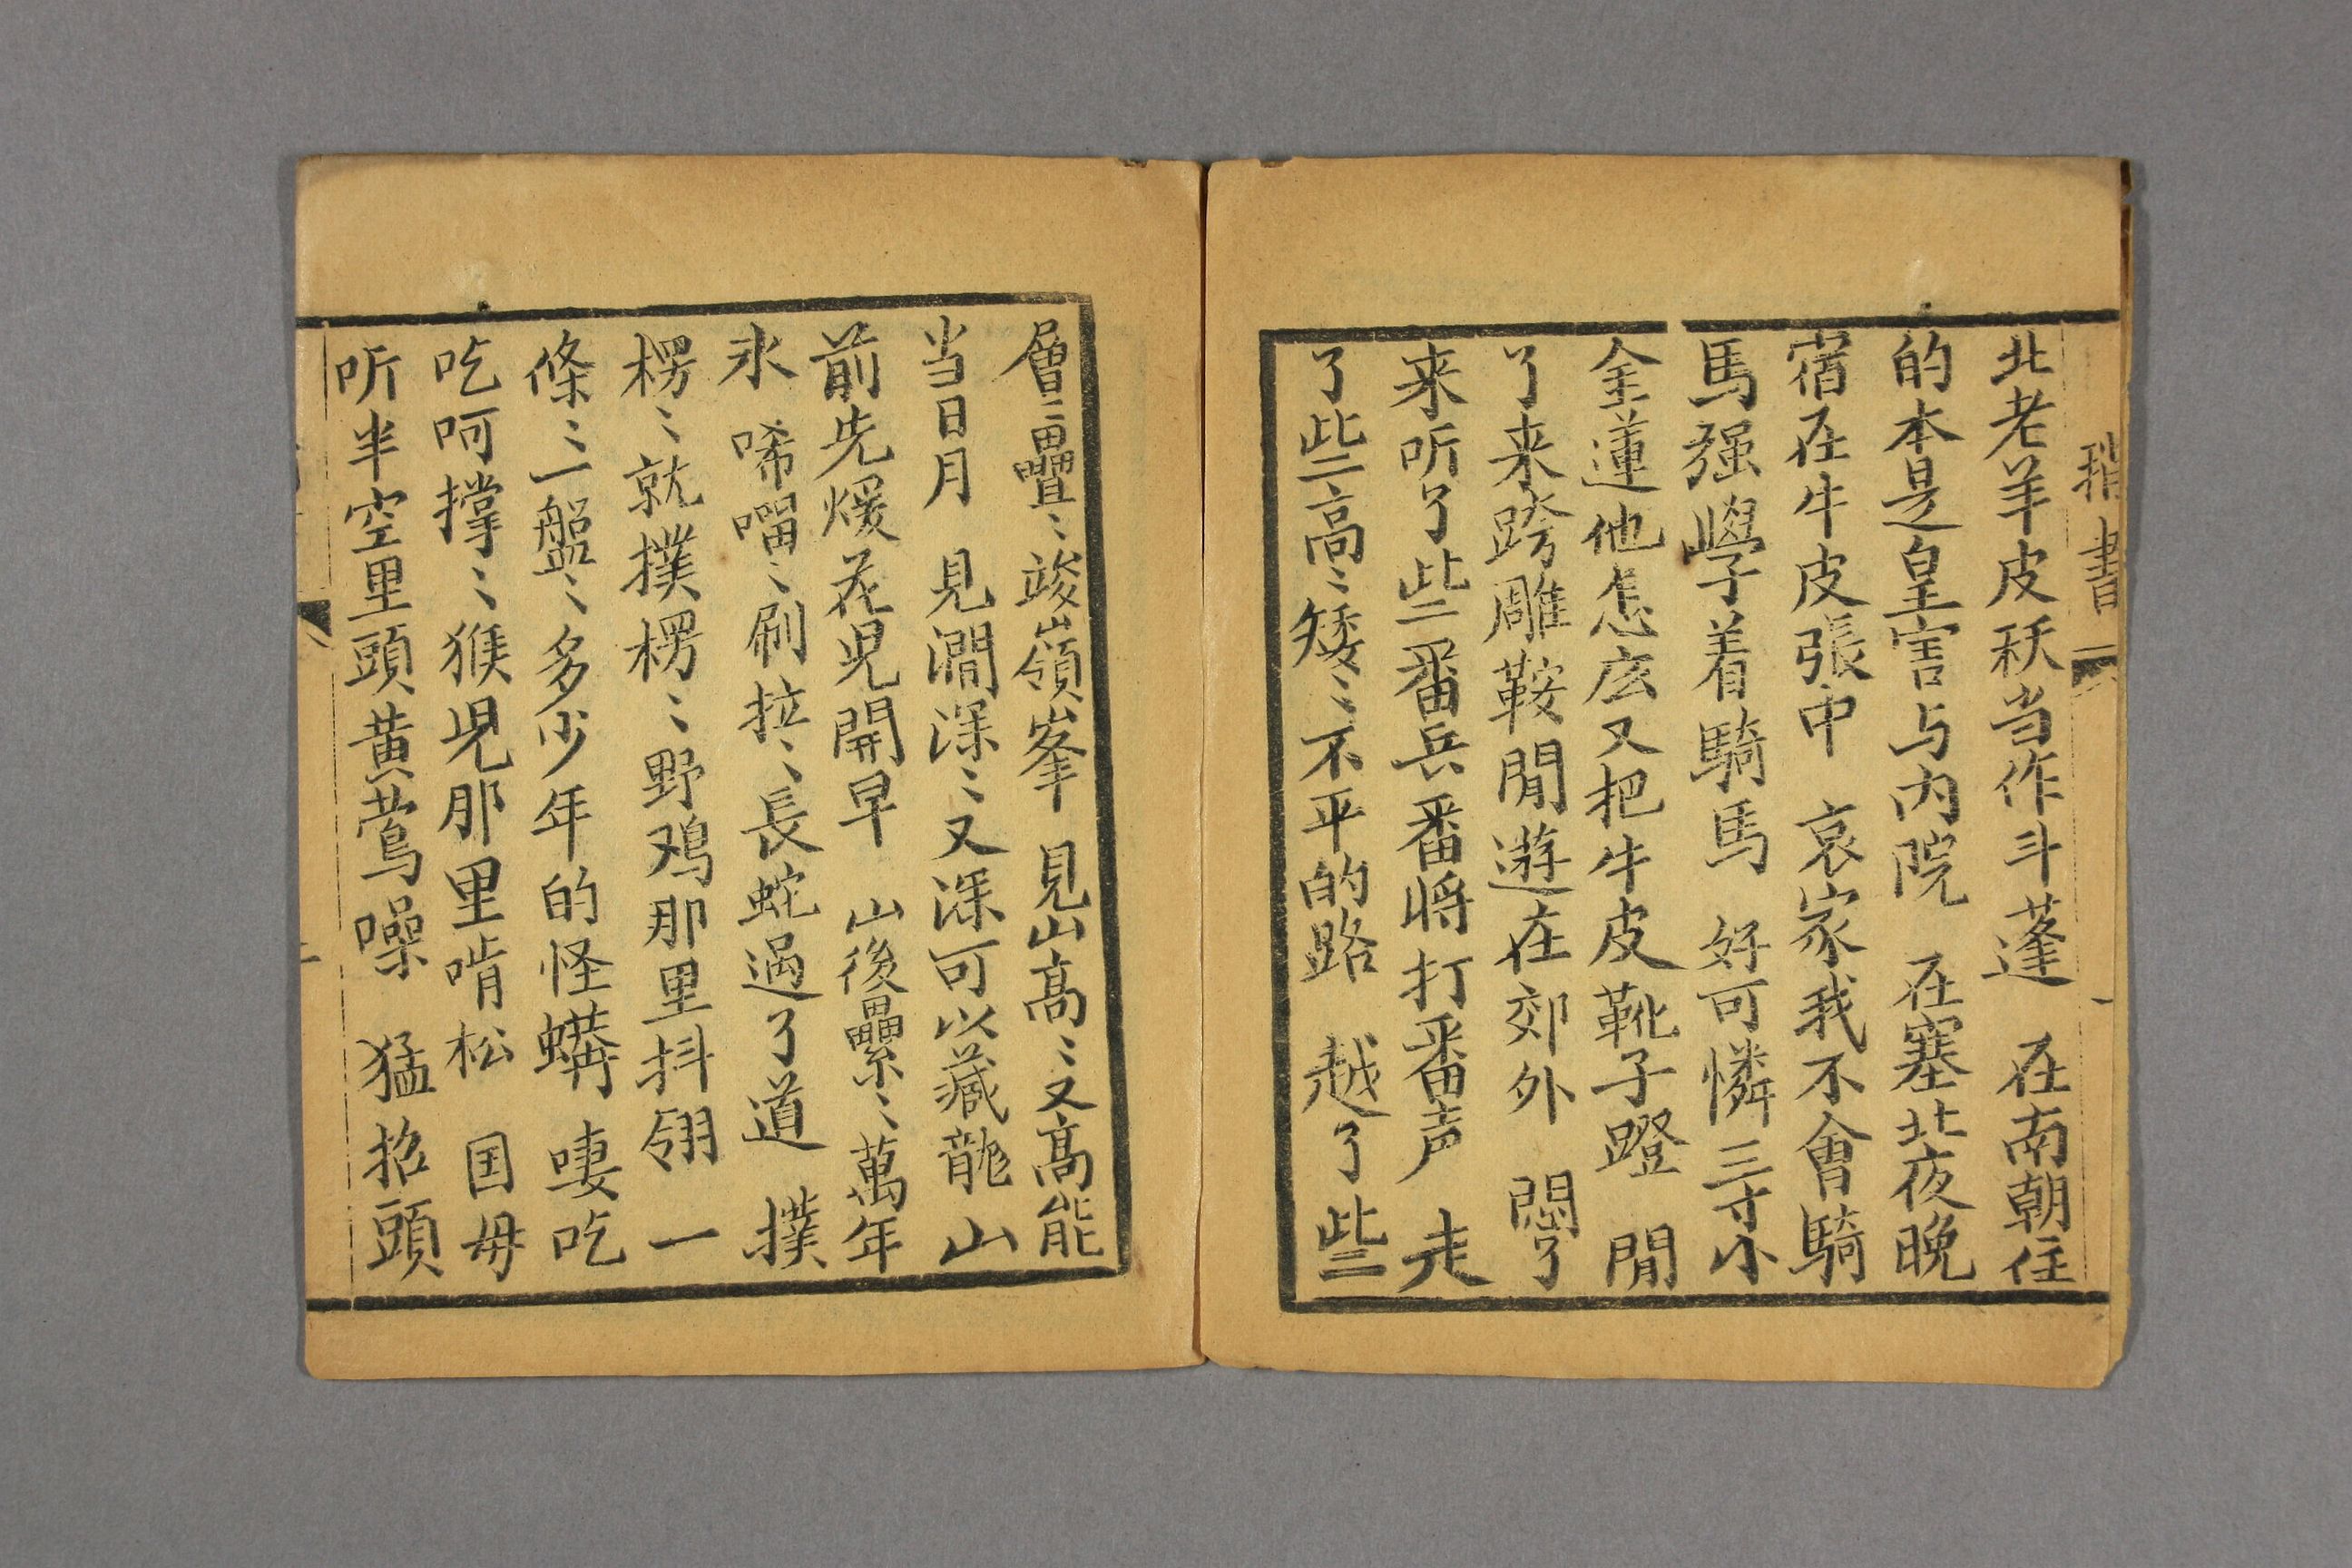 北老羊皮袄当作斗蓬　在南朝住
的本是皇宫与内院　在塞北夜晚
宿在牛皮張中　哀家我不會騎
馬强學着騎馬　好可憐三寸小
金蓮他怎広又把牛皮靴子蹬　閒
了来跨雕鞍閒遊在郊外　悶了
来听了些二番兵番将打番声　走
了些二高〻矮〻不平的路　越了些二
層〻疊〻峻嶺峯　見山高〻又高能
当日月　見澗深〻又深可以藏龍　山
前先煖花児開早　山後壘〻萬年
氷　唏嚠〻刷拉〻長蛇過了道　撲
楞〻就撲楞〻野鸡那里抖翎　一
條〻一盤〻多少年的怪蟒　嘍吃
吃呵撑〻猴児那里啃松　国母
听半空里頭黄鶯噪　猛抬頭